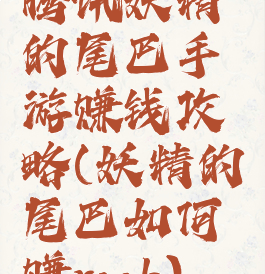 腾讯妖精
的尾巴手
游赚钱攻
略(妖精的
尾巴如何
赚